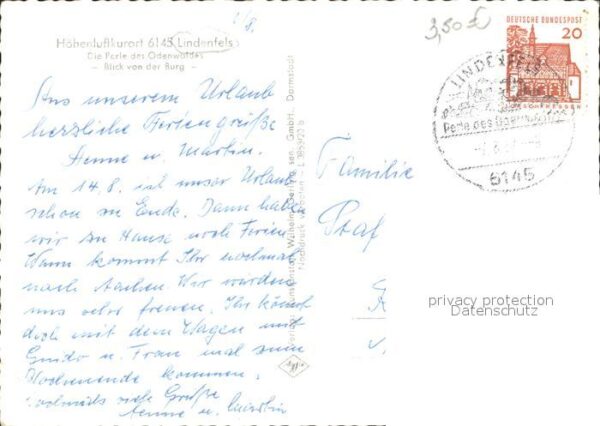 3,50 €
Höhenluftkurort 6145 Lindenfels
Die Perle des Odenwaldes
- Blick von der Burg -
Aus unserem Urlaub
herzliche Feriengrüße
Henne u. Martin.
Am 14.8. ist unser Urlaub
schon zu Ende. Dann haben
wir zu Hause noch Ferien.
Wann kommt Ihr nochmal
nach Aachen. Wir würden
uns sehr freuen. Ihr könnt
doch mit dem Wagen mit
Guido u. Frau mal zum
Wochenende kommen.
nochmals viele Grüße
Henne u. Martin
Nachdruck verboten
Familie
Graf
DEUTSCHE BUNDESPOST
20
LINDENFELS
Perle des Odenwaldes
6145
privacy protection
Datenschutz